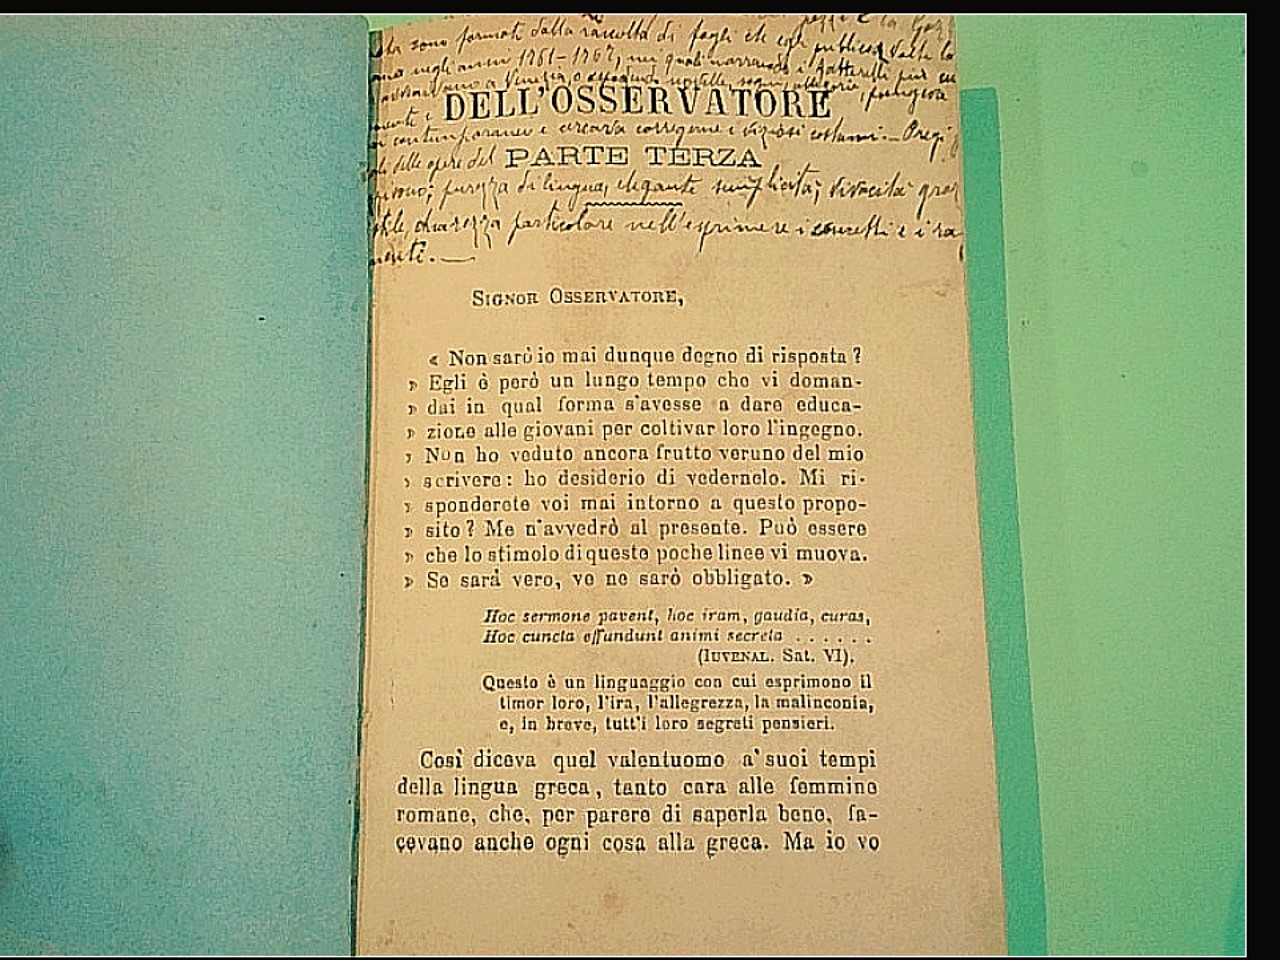 sono formati dalla raccolta di fogli che egli pubblicò
negli anni 1761-1762, nei quali narrando i
a Venezia, o esponendo novelle, sogni, allegorie, pungeva
DELL'OSSERVATORE
contemporanei e cercava correggerne i viziosi costumi. — Pregi
delle opere del
PARTE TERZA
purezza di lingua, elegante semplicità; vivacità
chiarezza particolare nell'esprimere i concetti e i
SIGNOR OSSERVATORE,
« Non sarò io mai dunque degno di risposta?
» Egli è però un lungo tempo che vi doman-
» dai in qual forma s'avesse a dare educa-
» zione alle giovani per coltivar loro l'ingegno.
» Non ho veduto ancora frutto veruno del mio
» scrivere: ho desiderio di vedernelo. Mi ri-
» sponderete voi mai intorno a questo propo-
» sito? Me n'avvedrò al presente. Può essere
» che lo stimolo di queste poche linee vi muova.
» Se sarà vero, ve ne sarò obbligato. »
Hoc sermone pavent, hoc iram, gaudia, curas,
Hoc cuncta effundunt animi secreta . . . . . .
(IUVENAL. Sat. VI).
Questo è un linguaggio con cui esprimono il
timor loro, l'ira, l'allegrezza, la malinconia,
e, in breve, tutt'i loro segreti pensieri.
Così diceva quel valentuomo a' suoi tempi
della lingua greca, tanto cara alle femmine
romane, che, per parere di saperla bene, fa-
cevano anche ogni cosa alla greca. Ma io vo